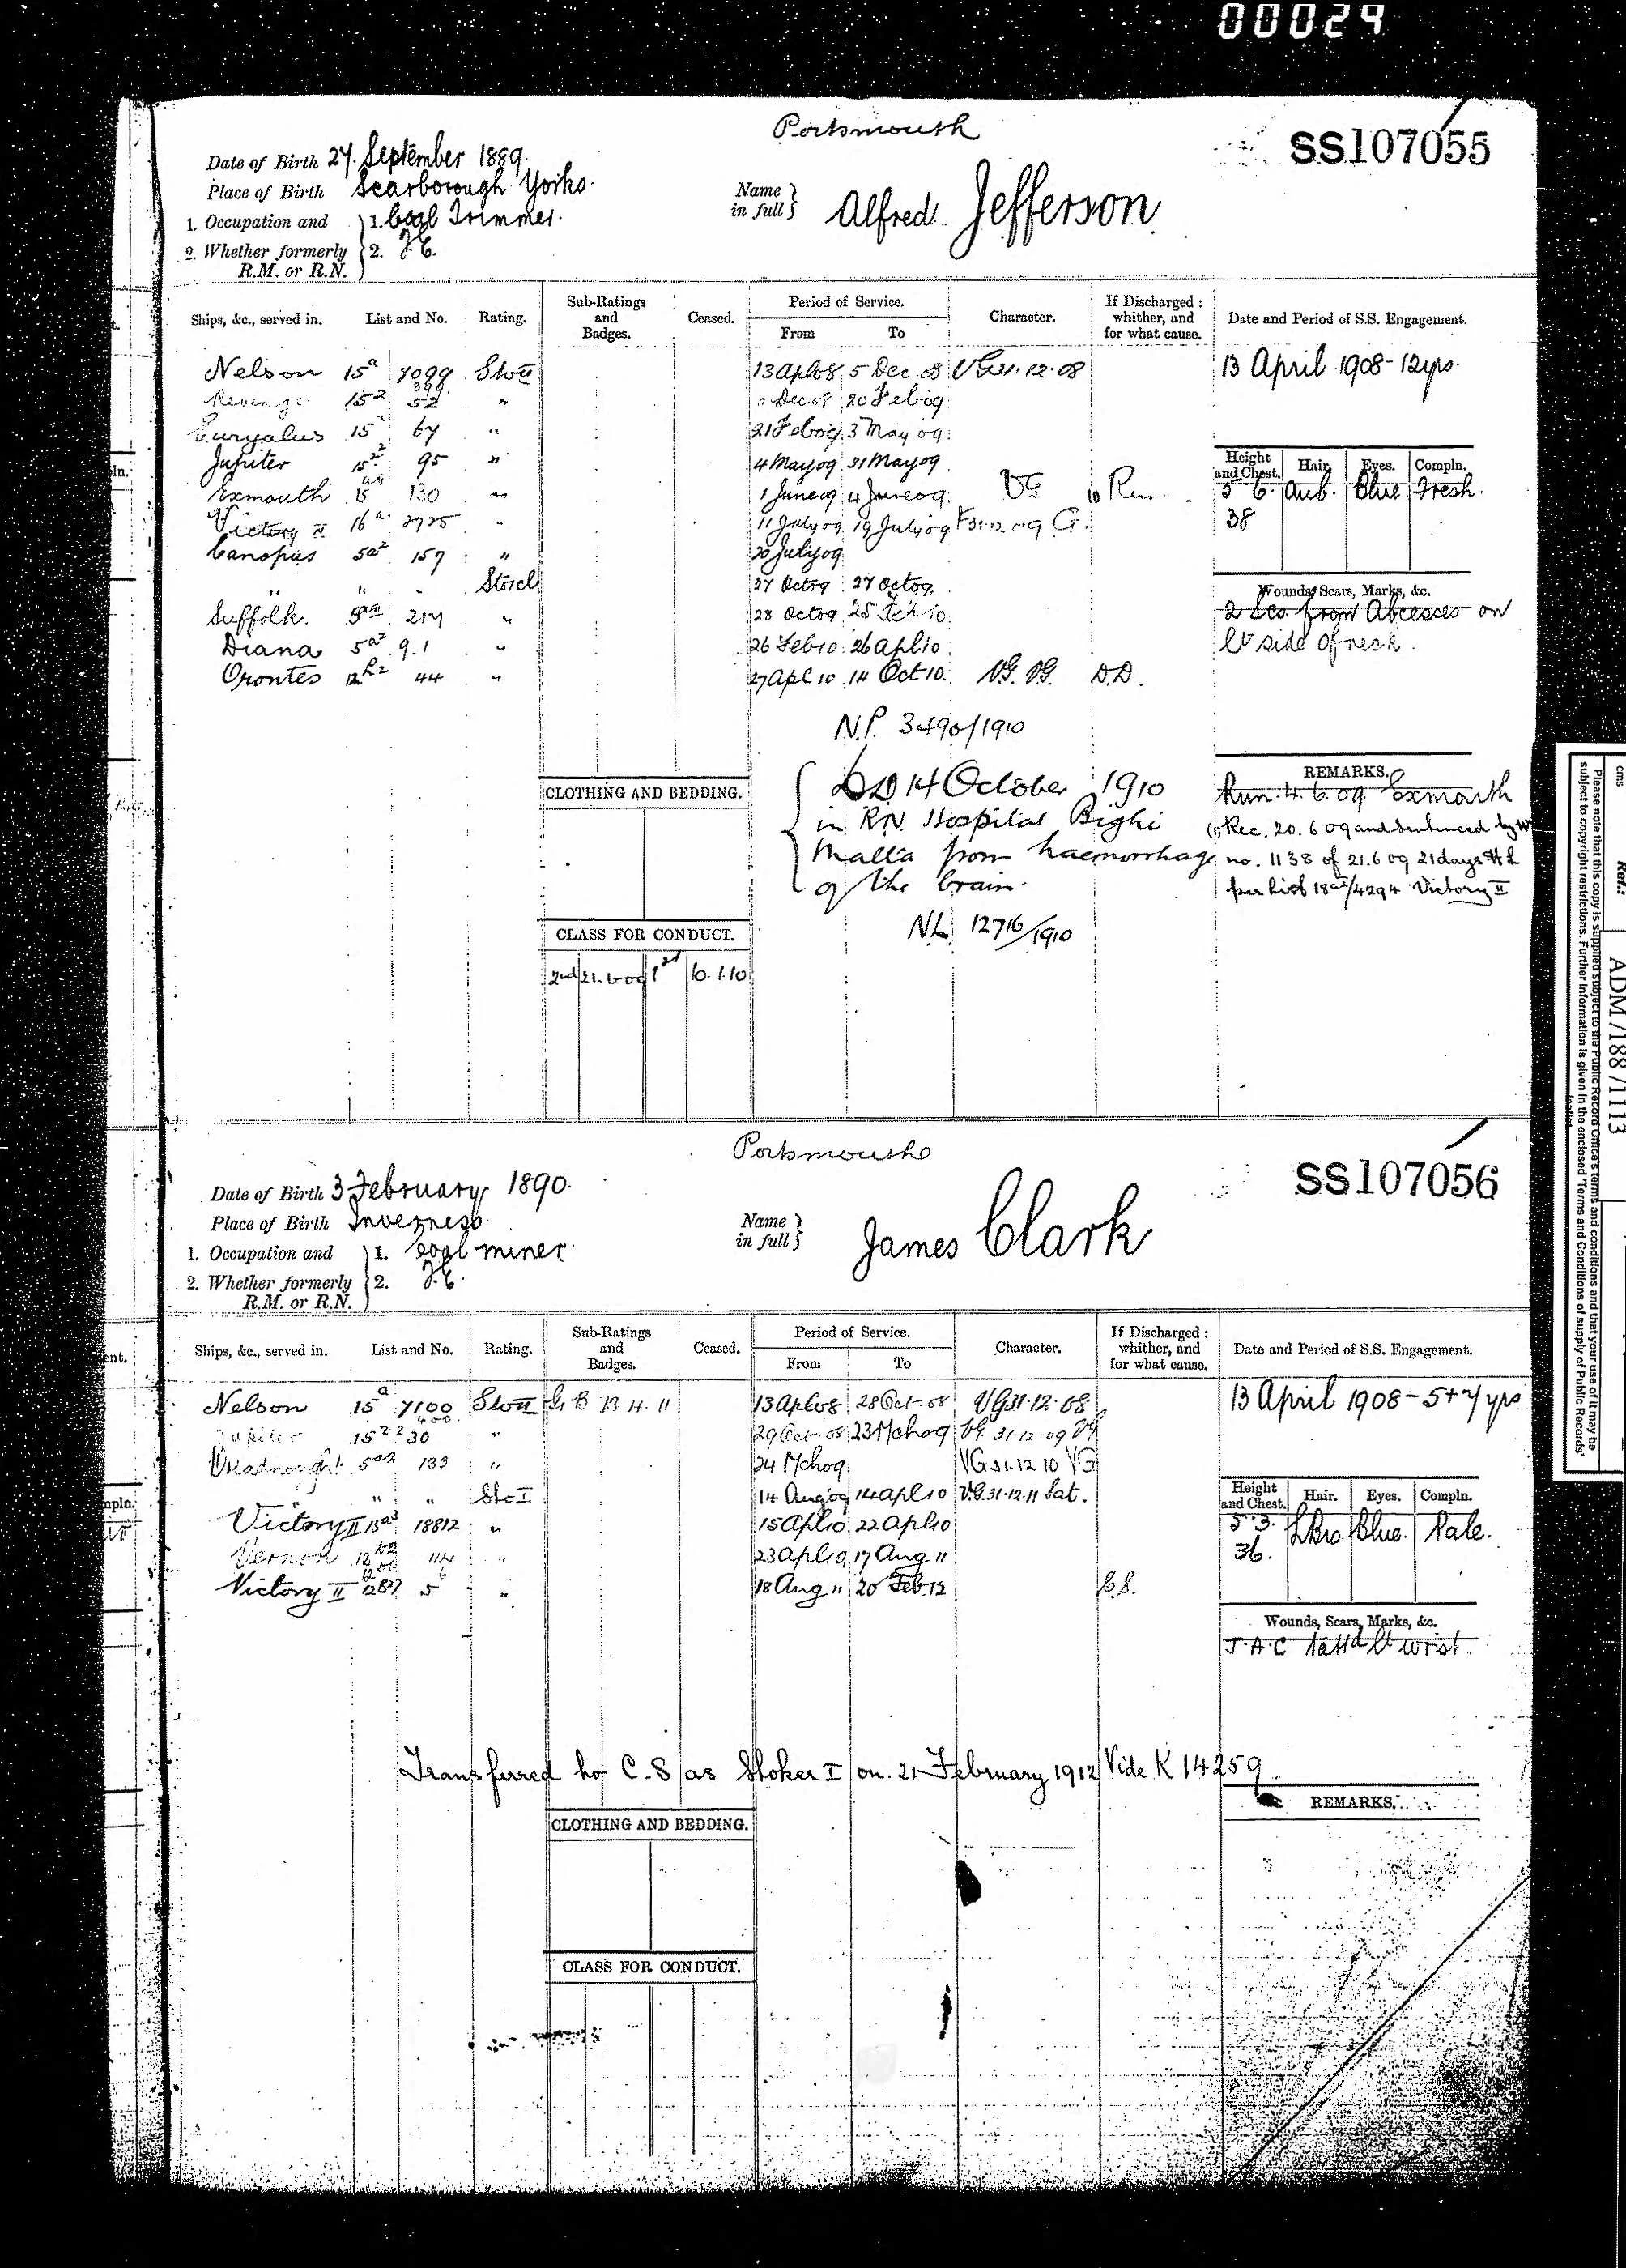 00024
Portsmouth
SS107055
Date of Birth 27 September 1889.
Place of Birth Scarborough Yorks.
Name in full } Alfred Jefferson
1. Occupation and } 1. Coal Trimmer.
2. Whether formerly } 2. J.C.
R.M. or R.N.
Ships, &c., served in. List and No. Rating. Sub-Ratings and Badges. Ceased. Period of Service. From To Character. If Discharged: whither, and for what cause. Date and Period of S.S. Engagement.
Nelson 15a 7099 Sto II 13 Apl 08 5 Dec 08 VG 31.12.08 13 April 1908 - 12 yrs.
Revenge 15 2 399 52 " Dec 08 20 Feb 09
Euryalus 15 67 " 21 Feb 09 3 May 09
Jupiter 15 2 95 " 4 May 09 31 May 09
Exmouth 15 130 " 1 June 09 4 June 09 VG (1) Run
Victory II 16a 2725 " 11 July 09 19 July 09 31.12.09 G.
Canopus 5a2 157 " 20 July 09
" " " Sto cl 27 Oct 09 27 Oct 09
Suffolk 5a 217 " 28 Oct 09 25 Feb 10
Diana 5a2 91 " 26 Feb 10 26 Apl 10
Orontes 12 44 " 27 Apl 10 14 Oct 10 V.G. V.G. D.D.
Height and Chest. Hair. Eyes. Compln.
5 6. Aub. Blue Fresh.
38
Wounds, Scars, Marks, &c.
2 Scs from Abcesses on
lt side of neck.
N.P. 3490/1910
DD 14 October 1910
in RN Hospital Bighi
Malta from haemorrhage
of the brain.
NL 12716/1910
REMARKS.
Run 4.6.09 Exmouth
(1) Rec. 20.6.09 and Sentenced by
no. 1138 of 21.6.09 21 days H L
per list 18a2/4294 Victory II
CLOTHING AND BEDDING.
CLASS FOR CONDUCT.
2nd 21.6.09 1st 10.1.10
Portsmouth
SS107056
Date of Birth 3 February 1890.
Place of Birth Inverness.
Name in full } James Clark
1. Occupation and } 1. Coal miner.
2. Whether formerly } 2. J.C.
R.M. or R.N.
Ships, &c., served in. List and No. Rating. Sub-Ratings and Badges. Ceased. Period of Service. From To Character. If Discharged: whither, and for what cause. Date and Period of S.S. Engagement.
Nelson 15a 7100 Sto II G. B 13 4. 11 13 Apl 08 28 Oct 08 VG 31.12.08 13 April 1908 - 5 + 7 yrs
Jupiter 15 2 400 230 " 29 Oct 08 23 Mch 09 VG. 31.12.09 VG
Dreadnought 5a2 133 " 24 Mch 09 VG 31.12.10 VG
" " " Sto I 14 Aug 09 14 Apl 10 V.G. 31.12.11 Sat.
Victory II 15a3 18812 " 15 Apl 10 22 Apl 10
Vernon 12 114 " 23 Apl 10 17 Aug 11
Victory II 5 " 18 Aug 11 20 Feb 12 C.S.
Height and Chest. Hair. Eyes. Compln.
5.3. L Bro. Blue. Pale.
36.
Wounds, Scars, Marks, &c.
J.A.C tattd lt wrist
Transferred to C.S as Stoker I on 21 February 1912 Vide K 14259
REMARKS.
CLOTHING AND BEDDING.
CLASS FOR CONDUCT.
cms Ref.: ADM/188/1113
Please note that this copy is supplied subject to the Public Record Office's terms and conditions and that your use of it may be
subject to copyright restrictions. Further information is given in the enclosed 'Terms and Conditions of supply of Public Records'
leaflet